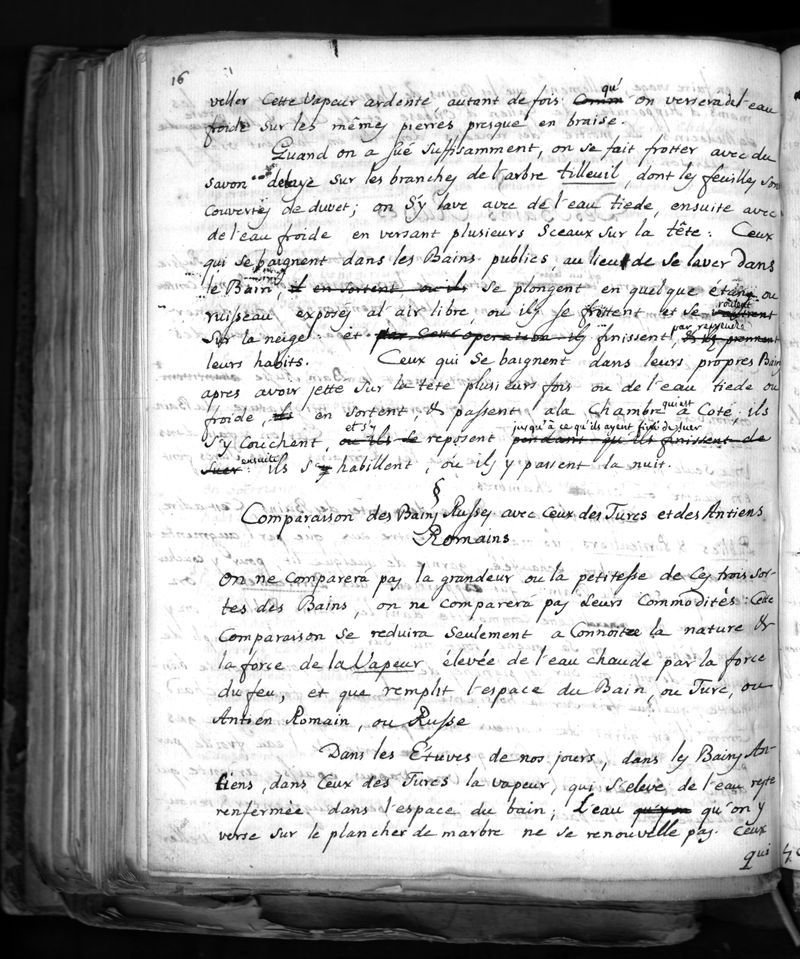 16
veller Cette Vapeur ardente, autant de fois Comm qu' on versera de l'eau
froide sur les mêmes pierres presque en braise.
Quand on a sué suffisamment, on se fait frotter avec du
savon delaye sur les branches de l'arbre tilleuil, dont les feuilles son
Couvertes de duvet; on s'y lave avec de l'eau tiede, ensuite avec
de l'eau froide en versant plusieurs Sceaux sur la tête: Ceux
qui se baignent dans les Bains publics, au lieu de se laver dans
le Bain, il en sortent, ou ils se plongent en quelque étang ou
ruisseau, exposés al'air libre, ou ils se frottent et se roulent
sur la neige: et par cette operation ils finissent, par reprendre
leurs habits. Ceux qui se baignent dans leurs propres Bain
apres avoir jetté sur la tête plusieurs fois ou de l'eau tiede ou
froide, ils en sortent & passent ala Chambre qui est a Coté, ils
s'y Couchent, ou ils se et s'y reposent pendant qu'ils finissent de jusqu'à ce qu'ils ayent fini de suer
suer: ensuite ils s'y habillent, ou ils y passent la nuit.
§
Comparaison des Bains Russes avec Ceux des Turcs et des Antiens
Romains.
On ne Comparera pas la grandeur ou la petitesse de Ces trois Sor-
tes des Bains, on ne Comparera pas Leurs Commodités: Cette
Comparaison se reduira seulement a Connoitre la nature &
la force de la Vapeur élevée de l'eau chaude par la force
du feu, et que remplit l'espace du Bain, ou Turc, ou
Antien Romain, ou Russe
Dans les Étuves de nos jours, dans les Bains An-
tiens, dans Ceux des Turcs la vapeur, qui s'eleve de l'eau reste
renfermée dans l'espace du bain; L'eau qu'on y
verse sur le plancher de marbre ne se renouvelle pas. Ceux
qui